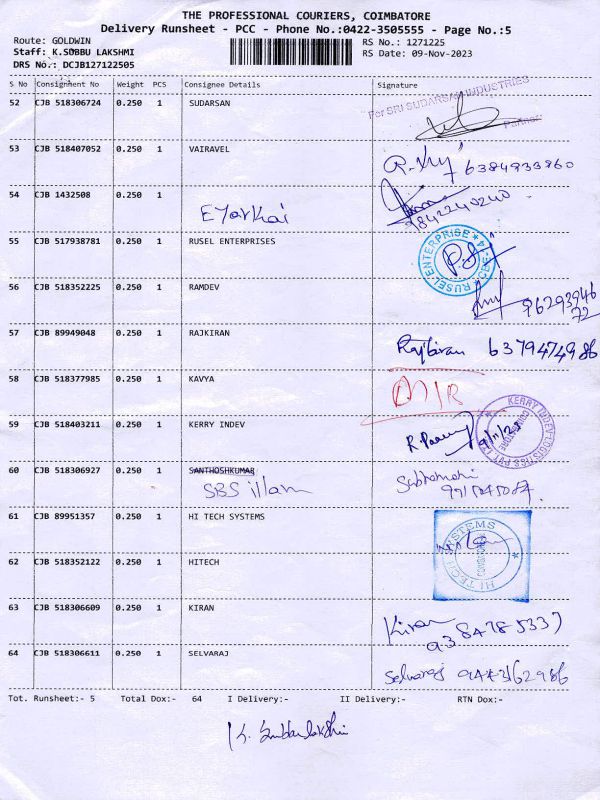 THE PROFESSIONAL COURIERS, COIMBATORE
Delivery Runsheet - PCC - Phone No.:0422-3505555 - Page No.:5
Route: GOLDWIN
Staff: K.SUBBU LAKSHMI
DRS No.: DCJB127122505
RS No.: 1271225
RS Date: 09-Nov-2023
S No Consignment No Weight PCS Consignee Details Signature
52 CJB 518306724 0.250 1 SUDARSAN
For SRI SUDARSAN INDUSTRIES
Partner
53 CJB 518407052 0.250 1 VAIRAVEL
6384933860
54 CJB 1432508 0.250 1
9842240240
55 CJB 517938781 0.250 1 RUSEL ENTERPRISES
RUSEL ENTERPRISE
56 CJB 518352225 0.250 1 RAMDEV
9629394672
57 CJB 89949048 0.250 1 RAJKIRAN
Rajkiran 6379474986
58 CJB 518377985 0.250 1 KAVYA
59 CJB 518403211 0.250 1 KERRY INDEV
KERRY INDEV LOGISTICS PVT LTD
COIMBATORE
60 CJB 518306927 0.250 1 SANTHOSHKUMAR
SBS illam
61 CJB 89951357 0.250 1 HI TECH SYSTEMS
HI TECH SYSTEMS
62 CJB 518352122 0.250 1 HITECH
63 CJB 518306609 0.250 1 KIRAN
Kiran
64 CJB 518306611 0.250 1 SELVARAJ
Selvaraj
Tot. Runsheet:- 5 Total Dox:- 64 I Delivery:- II Delivery:- RTN Dox:-
K. Subbulakshmi